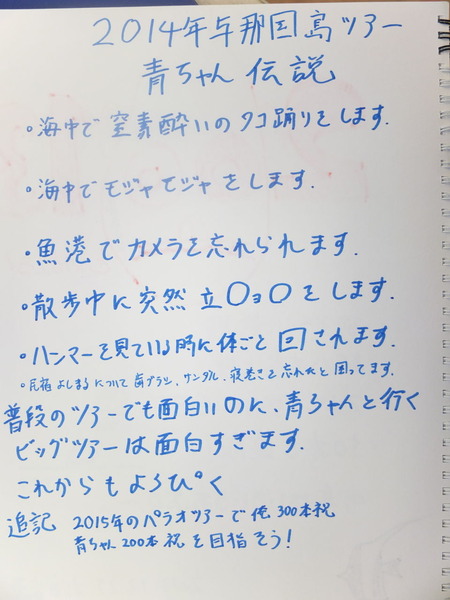 2014年与那国島ツアー
青ちゃん伝説
・海中で窒素酔いのタコ踊りをします.
・海中でモジャモジャをします.
・魚港でカメラを忘れられます.
・散歩中に突然立〇ョ〇をします.
・ハンマーを見ている時に体ごと回されます.
・民宿よしまるについて歯ブラシ、サンダル、寝巻きを忘れたと困ってます.
普段のツアーでも面白いのに、青ちゃんと行く
ビッグツアーは面白すぎます.
これからもよろぴく
追記 2015年のパラオツアーで俺300本祝
青ちゃん200本祝を目指そう!